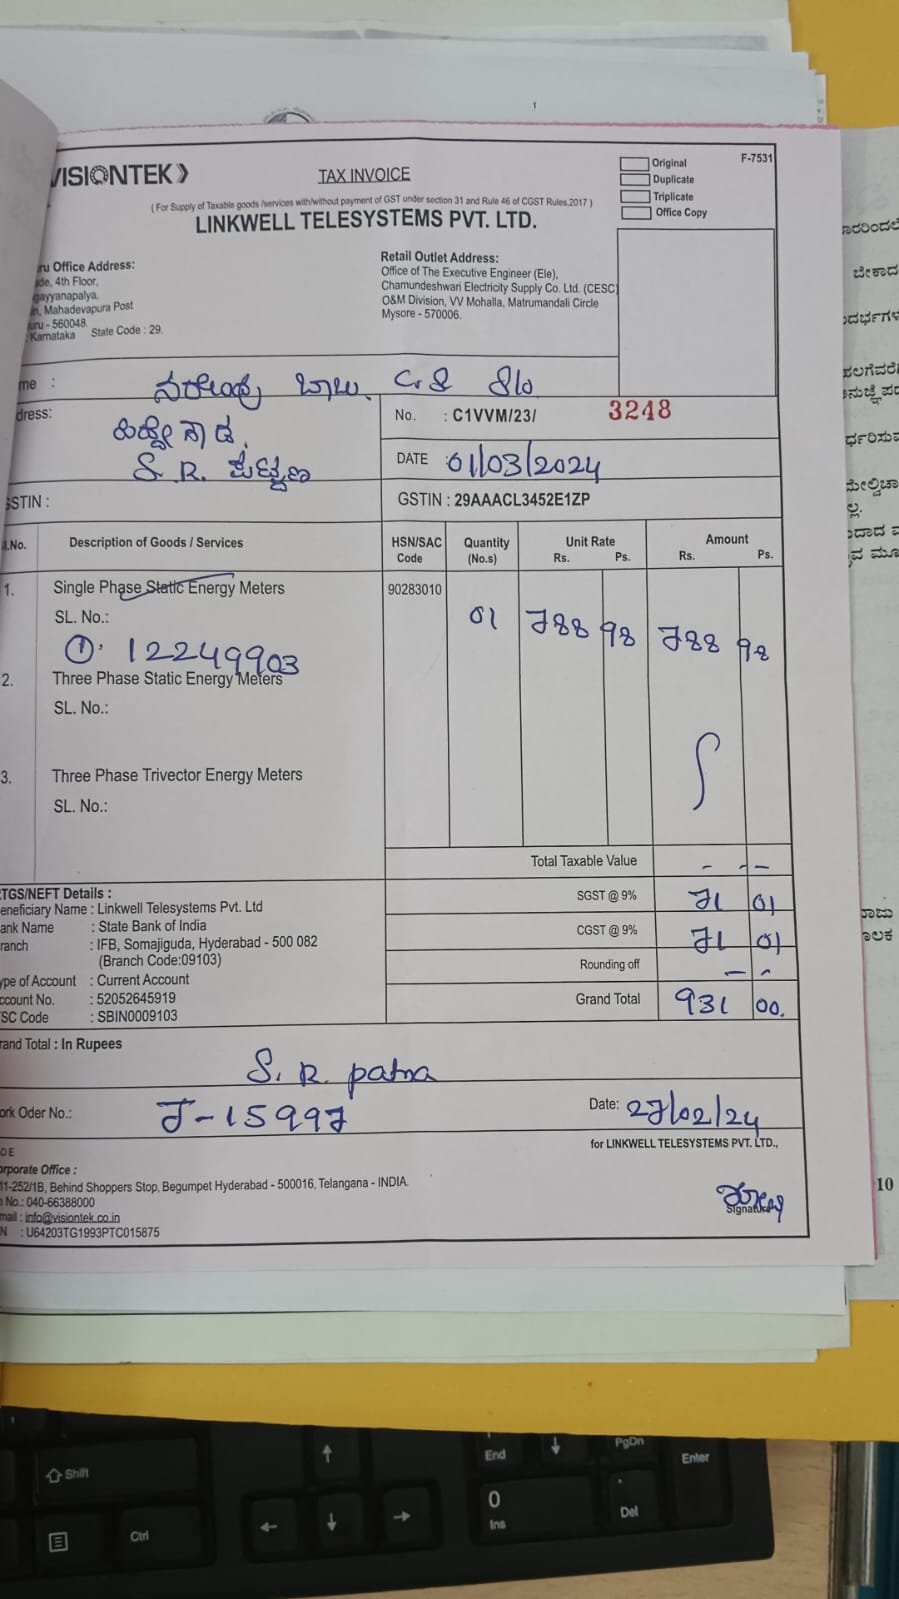 VISIONTEK
TAX INVOICE
Original
F-7531
Duplicate
Triplicate
Office Copy
( For Supply of Taxable goods /services with/without payment of GST under section 31 and Rule 46 of CGST Rules.2017 )
LINKWELL TELESYSTEMS PVT. LTD.
ru Office Address:
de, 4th Floor,
gayyanapalya,
n, Mahadevapura Post
uru - 560048.
Karnataka State Code : 29.
Retail Outlet Address:
Office of The Executive Engineer (Ele),
Chamundeshwari Electricity Supply Co. Ltd. (CESC)
O&M Division, VV Mohalla, Matrumandali Circle
Mysore - 570006.
me : ಬಾಬು. C.S S/o
dress:
S. R. ಪಟ್ಟಣ
No. : C1VVM/23/ 3248
DATE : 01/03/2024
GSTIN :
GSTIN : 29AAACL3452E1ZP
.No. Description of Goods / Services HSN/SAC Code Quantity (No.s) Unit Rate Rs. Ps. Amount Rs. Ps.
1. Single Phase Static Energy Meters 90283010 01 788 98 788 98
SL. No.:
① 12249903
2. Three Phase Static Energy Meters
SL. No.:
3. Three Phase Trivector Energy Meters
SL. No.:
Total Taxable Value - - -
SGST @ 9% 71 01
CGST @ 9% 71 01
Rounding off - -
Grand Total 931 00.
TGS/NEFT Details :
eneficiary Name : Linkwell Telesystems Pvt. Ltd
ank Name : State Bank of India
ranch : IFB, Somajiguda, Hyderabad - 500 082
(Branch Code:09103)
ype of Account : Current Account
ccount No. : 52052645919
SC Code : SBIN0009103
rand Total : In Rupees
S. R. patna
ork Oder No.: J-15997 Date: 27/02/24
for LINKWELL TELESYSTEMS PVT. LTD.,
O E
orporate Office :
11-252/1B, Behind Shoppers Stop, Begumpet Hyderabad - 500016, Telangana - INDIA.
No.: 040-66388000
mail : info@visiontek.co.in
N : U64203TG1993PTC015875
Signature
10
Shift
Ctrl
End
0
Ins
PgDn
Del
Enter